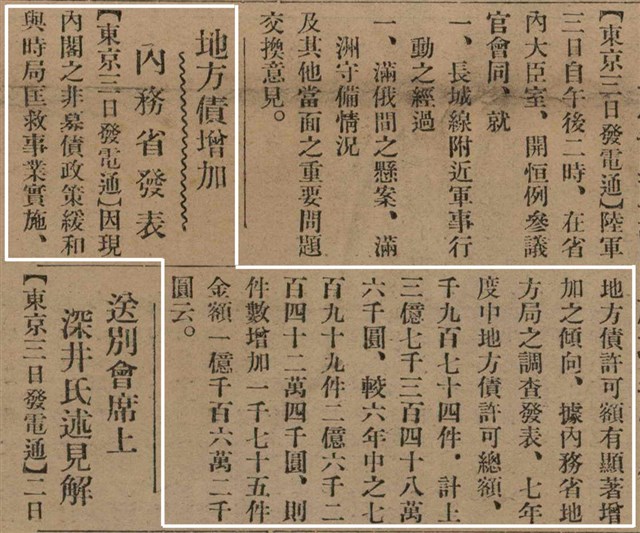 【東京三日發電通】陸軍
三日自午後二時、在省
內大臣室、開恒例參議
官會同、就
一、長城線附近軍事行
動之經過
一、滿俄間之懸案、滿
洲守備情況
及其他當面之重要問題
交換意見。
地方債增加
內務省發表
【東京三日發電通】因現
內閣之非募債政策緩和
與時局匡救事業實施、
地方債許可額有顯著增
加之傾向、據內務省地
方局之調查發表、七年
度中地方債許可總額、
千九百七十四件，計上
三億七千三百四十八萬
六千圓、較六年中之七
百九十九件二億六千二
百四十二萬四千圓、則
件數增加一千七十五件
金額一億千百六萬二千
圓云。
送別會席上
深井氏述見解
【東京三日發電通】二日